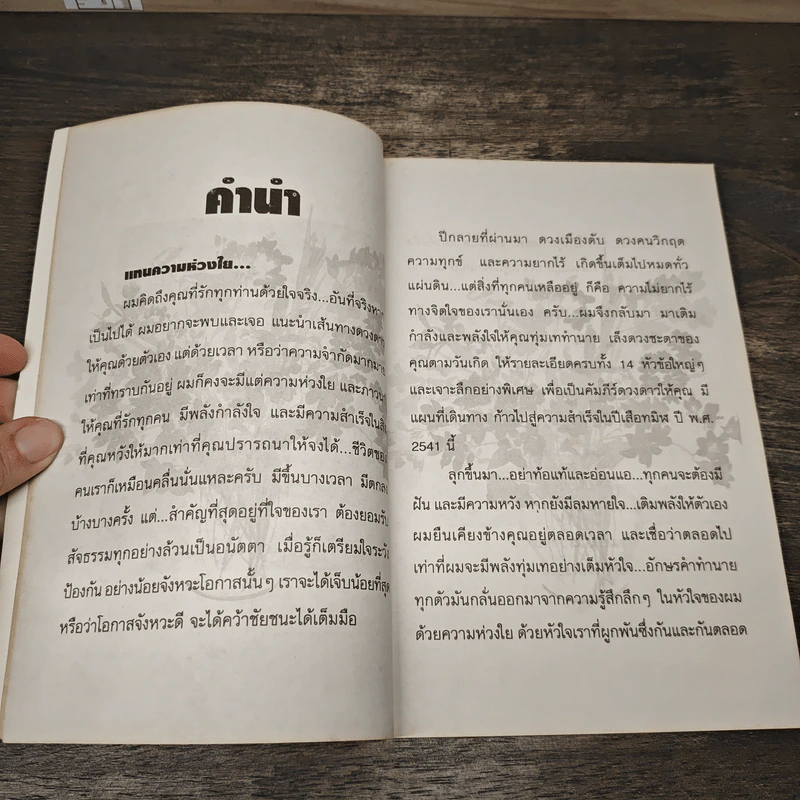 คำนำ
แทนความห่วงใย...
ผมคิดถึงคุณที่รักทุกท่านด้วยใจจริง...อันที่จริงหาก
เป็นไปได้ ผมอยากจะพบและเจอ แนะนำเส้นทางดวงดาว
ให้คุณด้วยตัวเอง แต่ด้วยเวลา หรือว่าความจำกัดมากมาย
เท่าที่ทราบกันอยู่ ผมก็คงจะมีแต่ความห่วงใย และภาวนา
ให้คุณที่รักทุกคน มีพลังกำลังใจ และมีความสำเร็จในสิ่ง
ที่คุณหวังให้มากเท่าที่คุณปรารถนาให้จงได้...ชีวิตของ
คนเราก็เหมือนคลื่นนั่นแหละครับ มีขึ้นบางเวลา มีตกลง
บ้างบางครั้ง แต่...สำคัญที่สุดอยู่ที่ใจของเรา ต้องยอมรับ
สัจธรรมทุกอย่างล้วนเป็นอนัตตา เมื่อรู้ก็เตรียมใจระวัง
ป้องกัน อย่างน้อยจังหวะโอกาสนั้นๆ เราจะได้เจ็บน้อยที่สุด
หรือว่าโอกาสจังหวะดี จะได้คว้าชัยชนะได้เต็มมือ
ปีกลายที่ผ่านมา ดวงเมืองดับ ดวงคนวิกฤต
ความทุกข์ และความยากไร้ เกิดขึ้นเต็มไปหมดทั่ว
แผ่นดิน...แต่สิ่งที่ทุกคนเหลืออยู่ ก็คือ ความไม่ยากไร้
ทางจิตใจของเรานั่นเอง ครับ...ผมจึงกลับมา มาเติม
กำลังและพลังใจให้คุณทุ่มเททำนาย เล็งดวงชะตาของ
คุณตามวันเกิด ให้รายละเอียดครบทั้ง 14 หัวข้อใหญ่ๆ
และเจาะลึกอย่างพิเศษ เพื่อเป็นคัมภีร์ดวงดาวให้คุณ มี
แผนที่เดินทาง ก้าวไปสู่ความสำเร็จในปีเสือทมิฬ ปี พ.ศ.
2541 นี้
ลุกขึ้นมา...อย่าท้อแท้และอ่อนแอ...ทุกคนจะต้องมี
ฝัน และมีความหวัง หากยังมีลมหายใจ...เติมพลังให้ตัวเอง
ผมยืนเคียงข้างคุณอยู่ตลอดเวลา และเชื่อว่าตลอดไป
เท่าที่ผมจะมีพลังทุ่มเทอย่างเต็มหัวใจ...อักษรคำทำนาย
ทุกตัวมันกลั่นออกมาจากความรู้สึกลึกๆ ในหัวใจของผม
ด้วยความห่วงใย ด้วยหัวใจเราที่ผูกพันซึ่งกันและกันตลอด